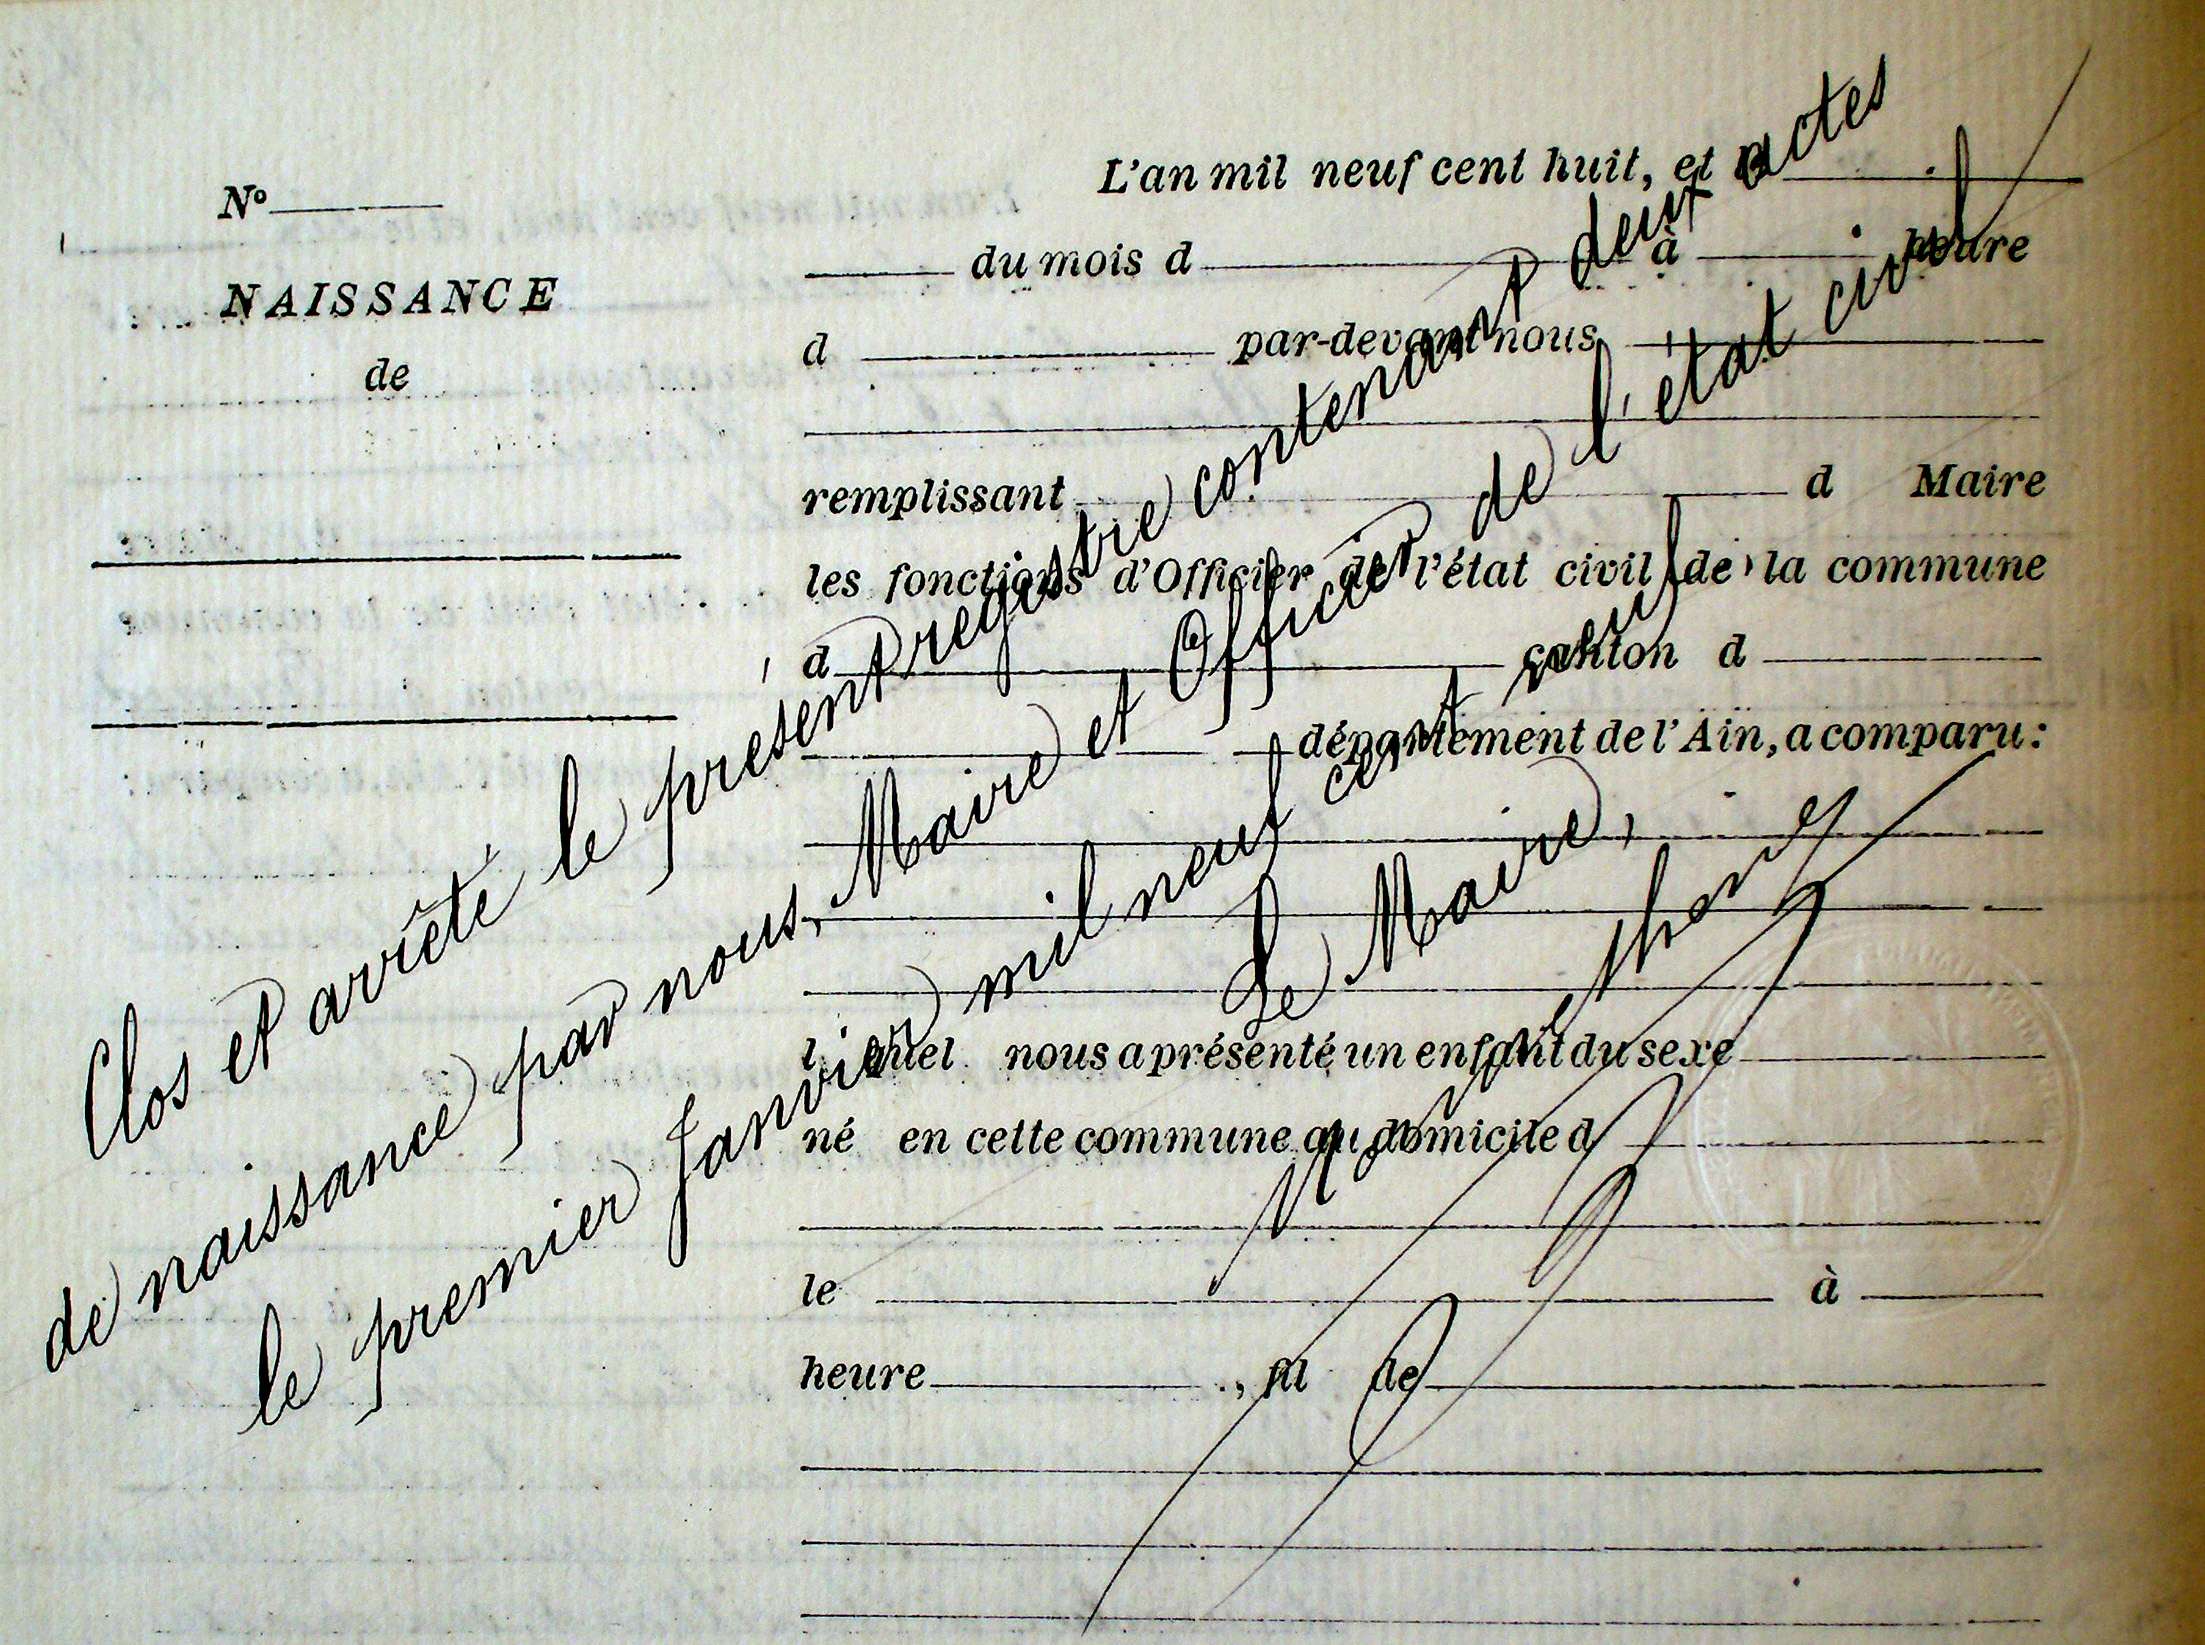 L'an mil neuf cent huit, et
N°
du mois d à heure
NAISSANCE
d par-devant nous
de
remplissant d Maire
les fonctions d'Officier de l'état civil de la commune
d canton d
département de l'Ain, a comparu:
l quel nous a présenté un enfant du sexe
né en cette commune au domicile d
le à
heure , fil de
Clos et arrêté le present registre contenant deux actes
de naissance par nous, Maire et Officier de l'état civil
le premier Janvier mil neuf cent neuf
Le Maire,